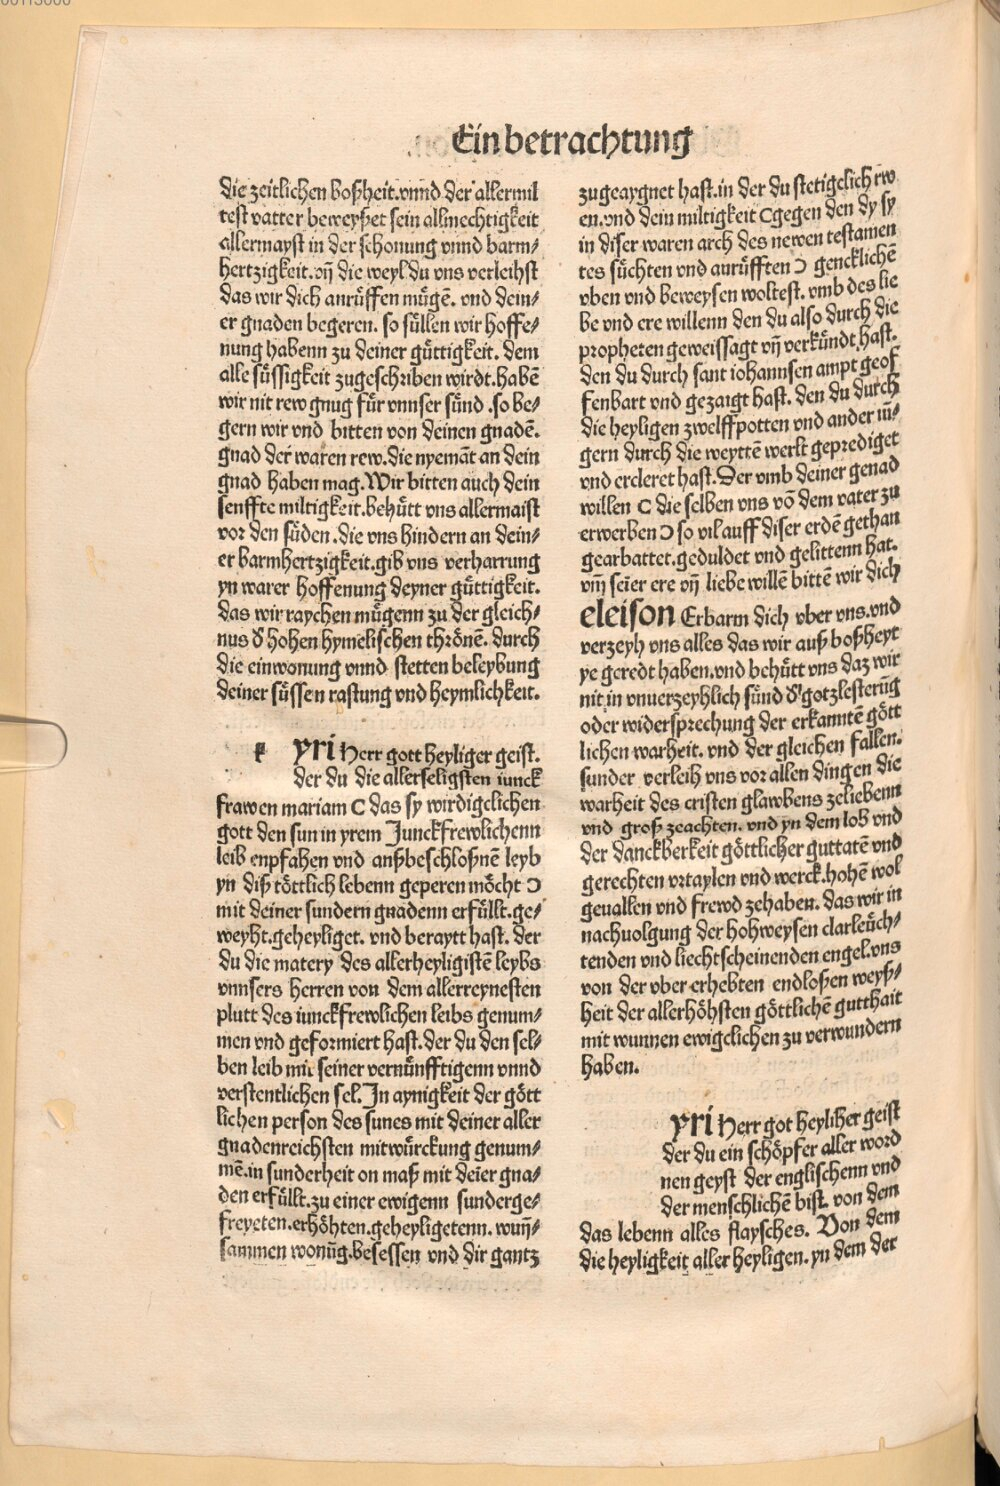 00113000
Ein betrachtung
die zeitlichen boßheit. vnnd der allermil
test vatter beweyßet sein allmechtigkeit
allermayst in der schonung vnnd barm⸗
hertzigkeit. vn̄ die weyl du vns verleihst
das wir dich anrüffen mügē. vnd dein⸗
er gnaden begeren. so süllen wir hoffe⸗
nung habenn zu deiner güttigkeit. dem
alle süssigkeit zugeschriben wirdt. habē
wir nit rew gnug für vnnser sünd .so be⸗
gern wir vnd bitten von deinen gnadē.
gnad der waren rew. die nyemāt an dein
gnad haben mag. Wir bitten auch dein
senffte miltigkeit. behütt vns allermaist
vor den süden .die vns hindern an dein⸗
er barmhertzigkeit. gib vns verharrung
yn warer hoffenung deyner güttigkeit.
das wir raychen mügenn zu der gleich⸗
nus d' hohen hymelischen thrönē. durch
die einwonung vnnd stetten beleybung
deiner süssen rastung vnd heymlichkeit.
k yri Herr gott heyliger geist.
der du die allerseligsten iunck
frawen mariam C das sy wirdigclichen
gott den sun in yrem Junckfrewlichenn
leib enpfahen vnd anßbeschloßnē leyb
yn diß töttlich lebenn geperen möcht Ɔ
mit deiner sundern gnadenn erfüllt. ge⸗
weyht. geheyliget. vnd beraytt hast. der
du die matery des allerheyligistē leybs
vnnsers herren von dem allerreynesten
plutt des iunckfrewlichen leibs genum⸗
men vnd geformiert hast. der du den sel⸗
ben leib mit seiner vernünfftigenn vnnd
verstentlichen sel. In aynigkeit der gött
lichen person des sunes mit deiner aller
gnadenreichsten mitwürckung genum⸗
mē. in sunderheit on maß mit deīer gna⸗
den erfüllt. zu einer ewigenn sunderge⸗
freyeten. erhöhten. geheyligetenn. wun̄⸗
sammen wonūg. besessen vnd dir gantz
zugeaygnet hast. in der du stetigclich rw
en. vnd dein miltigkeit C gegen den dy sy
in diser waren arch des newen testamen
tes süchten vnd anrüfften Ɔ gencklichē
vben vnd beweysen woltest. vmb des lie
be vnd ere willenn den du also durch die
propheten geweissagt vn̄ verkündt hast.
den du durch sant iohannsen ampt geof
fenbart vnd gezaigt hast. den du durch
die heyligen zwelffpotten vnd ander iū⸗
gern durch die weyttē werlt geprediget
vnd ercleret hast. Der vmb deiner genad
willen C die selben vns vō dem vater zu
erwerben Ɔ so vil auff diser erdē gethan
gearbattet. geduldet vnd gelittenn hat.
vm̄ seīer ere vn̄ liebe willē bittē wir dich
eleison Erbarm dich vber vns. vnd
verzeyh vns alles das wir auß boßheyt
ye geredt haben. vnd behütt vns daz wir
nit in vnuerzeyhlich sünd d' gotzlesterūg
oder widersprechung der erkanntē gött
lichen warheit. vnd der gleichen fallen.
sunder verleih vns vor allen dingen die
warheit des cristen glawbens zeliebenn
vnd groß zeachten. vnd yn dem lob vnd
der danckberkeit göttlicher guttatē vnd
gerechten vrtaylen vnd werck. hohē wol
geuallen vnd frewd zehaben. das wir in
nachuolgung der hohweysen clarleüch⸗
tenden vnd liechtscheinenden engel. vns
von der vber erhebten endloßen weyß⸗
heit der allerhöhsten göttlichē gutthait
mit wunnen ewigclichen zu verwundern
haben.
yri Herr got heyliher geist
der du ein schöpfer aller word
nen geyst der englischenn vnd
der menschlichē bist. von dem
das lebenn alles flaysches. Von dem
die heyligkeit aller heyligen. yn dem der